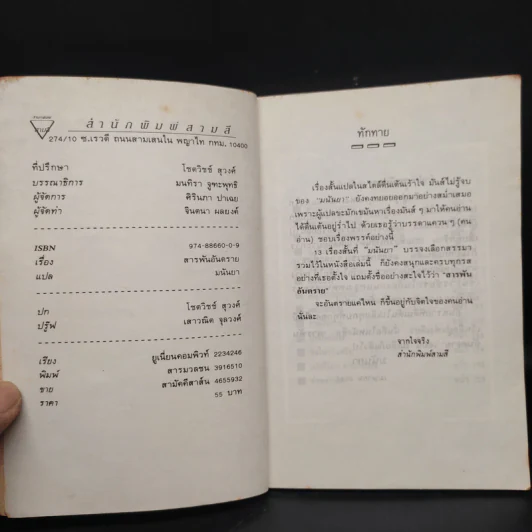 สำนักพิมพ์สามสี
274/10 ซ.เรวดี ถนนสามเสนใน พญาไท กทม. 10400
ที่ปรึกษา โชควิชช์ สุวงศ์
บรรณาธิการ มนทิรา จูฑะพุทธิ
ผู้จัดการ ศิรินภา ปาเฉย
ผู้จัดทำ จินตนา ผลยงค์
ISBN 974-88660-0-9
เรื่อง สารพันอันตราย
แปล มนันยา
ปก โชควิชช์ สุวงศ์
ปรู๊ฟ เสาวณิต จุลวงศ์
เรียง ยูเนี่ยนคอมพิวท์ 2234246
พิมพ์ สารมวลชน 3916510
ขาย สามัคคีสาส์น 4655932
ราคา 55 บาท
ทักทาย
เรื่องสั้นแปลในสไตล์ตื่นเต้นเร้าใจ มันส์ไม่รู้จบ
ของ "มนันยา" ยังคงทยอยออกมาอย่างสม่ำเสมอ
เพราะผู้แปลขะมักเขม้นหาเรื่องมันส์ ๆ มาให้คนอ่าน
ได้ตื่นเต้นอยู่ร่ำไป ด้วยเธอรู้ว่าบรรดาแควน ๆ (คน
อ่าน) ชอบเรื่องพรรค์อย่างนี้
13 เรื่องสั้นที่ "มนันยา" บรรจงเลือกสรรมา
รวมไว้ในหนังสือเล่มนี้ ก็ยังคงสนุกและครบทุกรส
อย่างที่เธอตั้งใจ แถมตั้งชื่ออย่างสะใจไว้ว่า "สารพัน
อันตราย"
จะอันตรายแค่ไหน ก็ขึ้นอยู่กับจิตใจของคนอ่าน
นั่นละ
จากใจจริง
สำนักพิมพ์สามสี